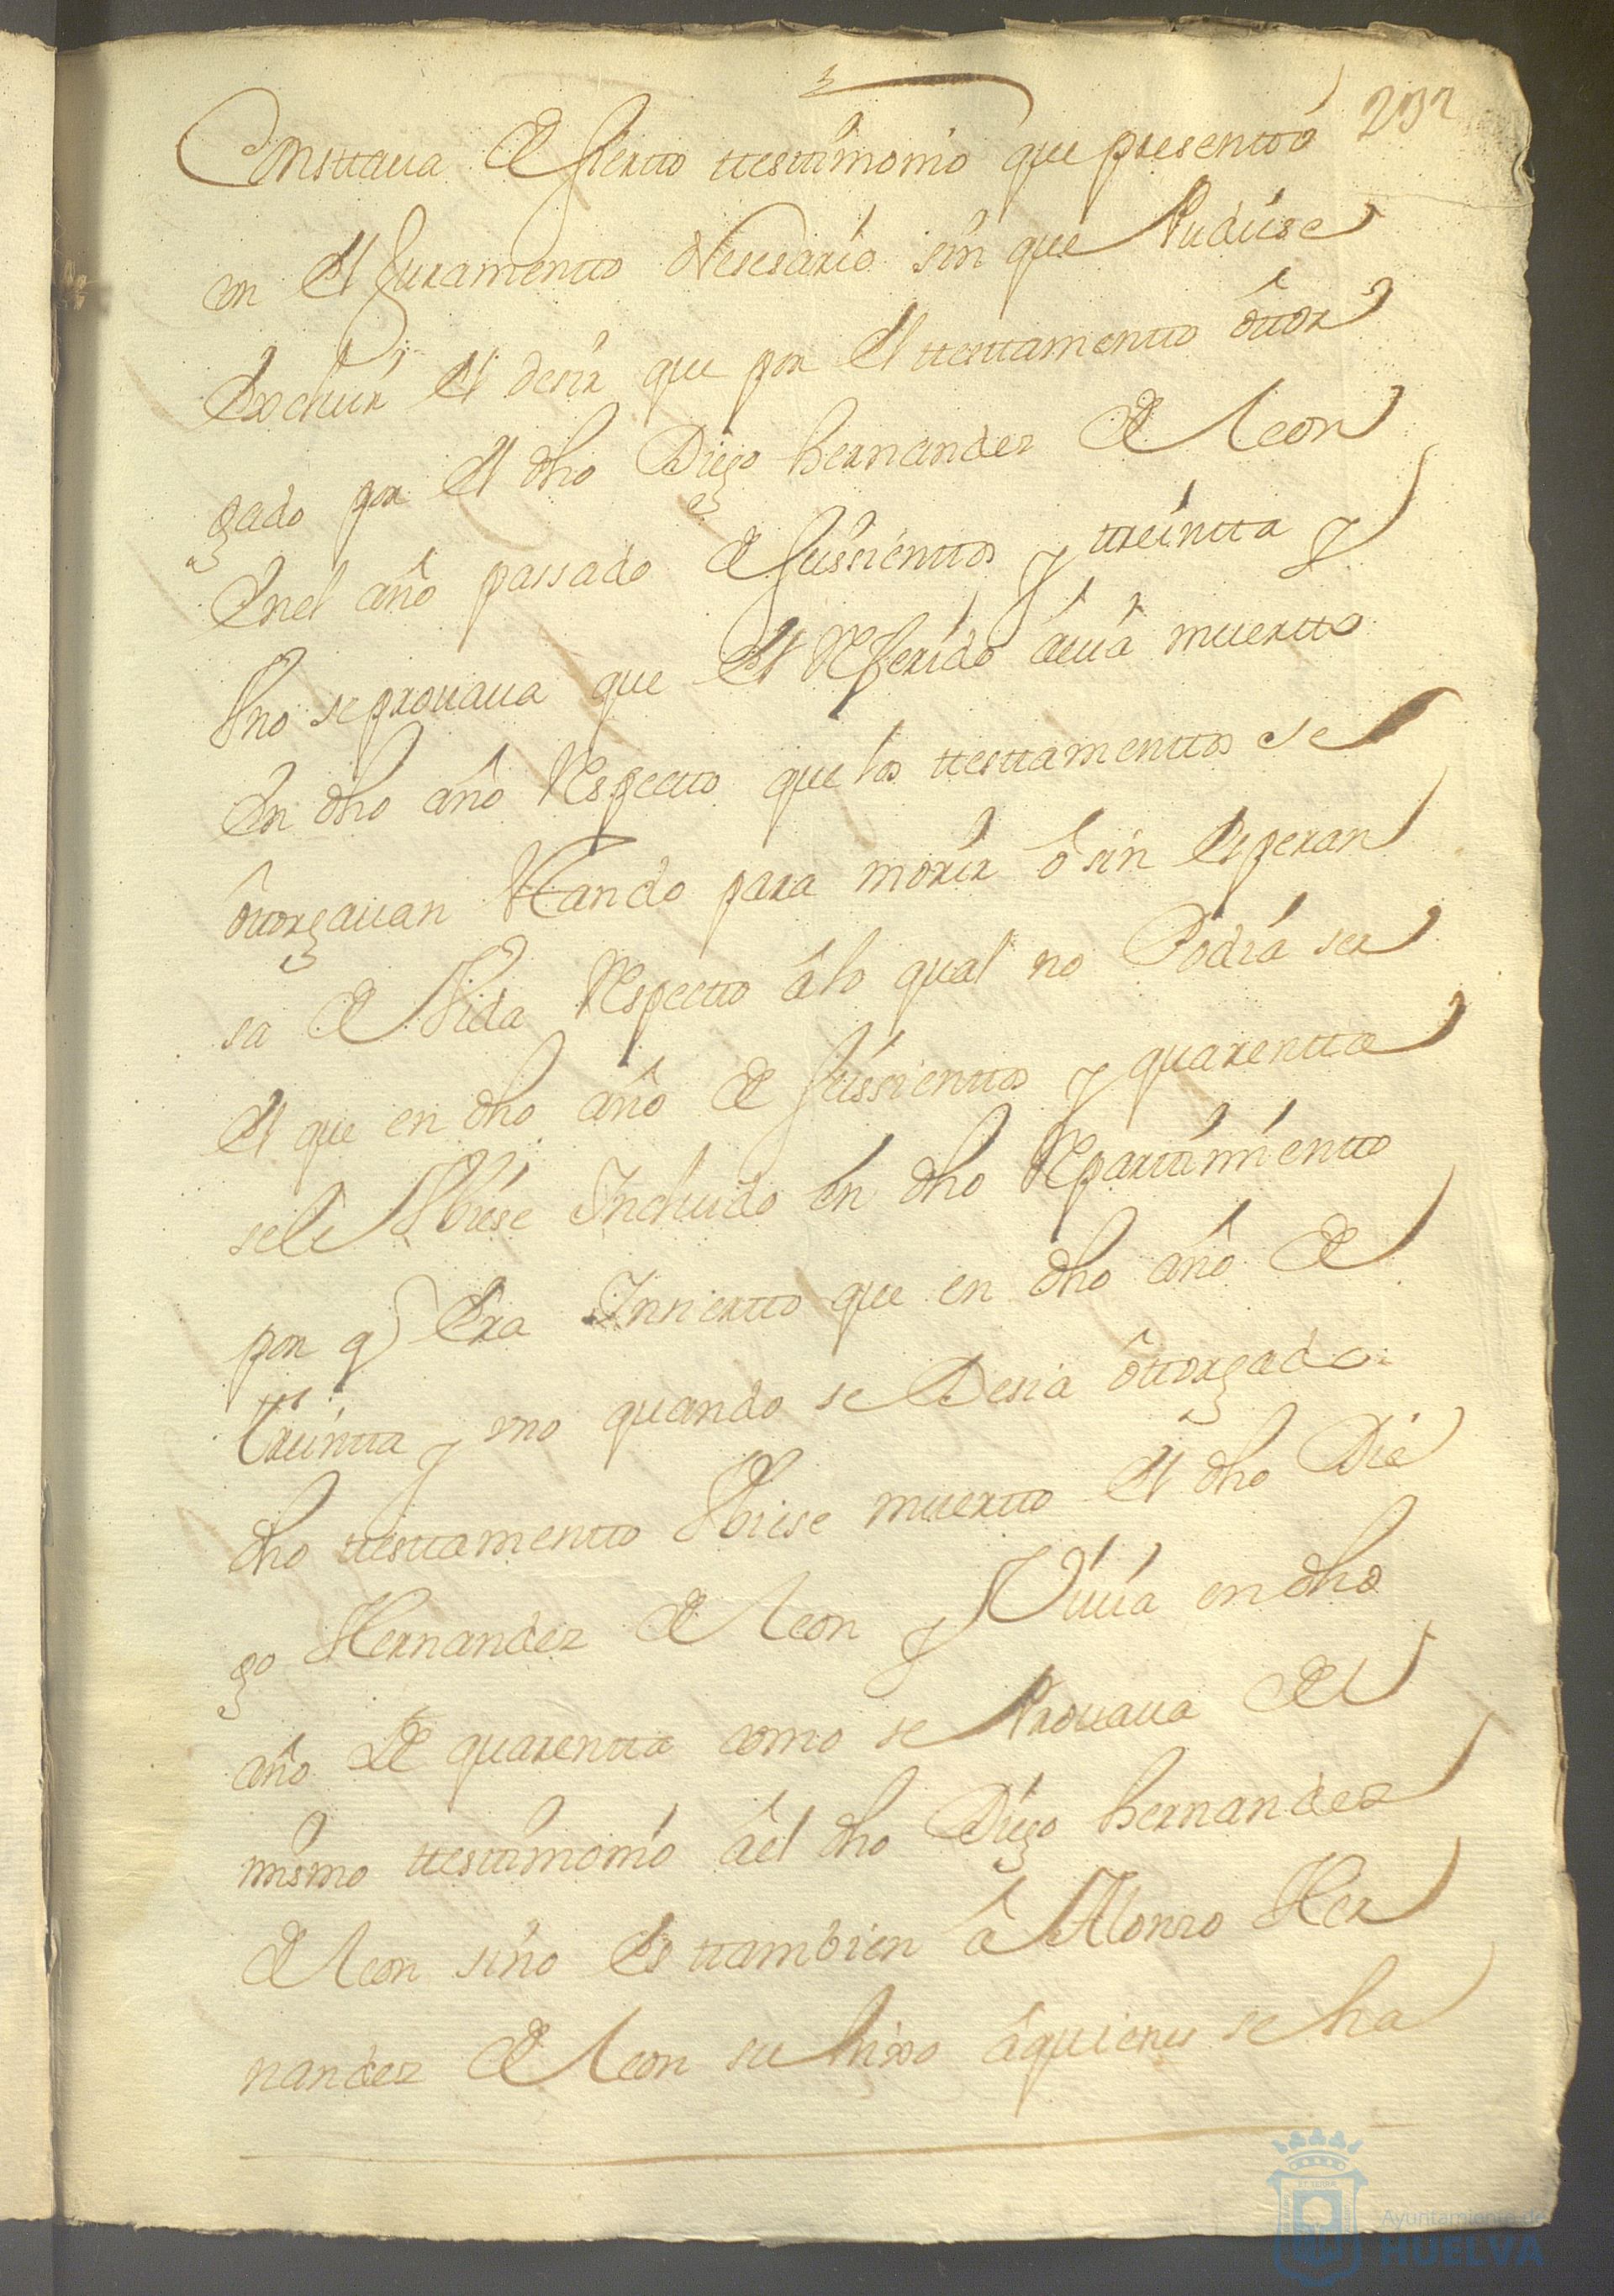 232
Consttaua de sierto ttesttimonio que presentó
en el Juramentto Nesesario sin que Pudiese
Excluir el desir que por el testtamentto ôttor
gado por el dho Diego hernandez de leon
Enel año passado de seissienttos y treintta y
Vno se prouaua que el Referido auia muertto
En dho año Respectto que los testtamenttos se
ôttorgauan esttando para morir ô sin esperan
sa de Vida Respectto â lo qual no Podia ser
el que en dho año de seissienttos y quarentta
sele Vbiese Incluido en dho Reparttimientto
por q Era Insiertto que en dho año de
treintta y vno quando se Desia ôttorgado
dho testtamentto Vbiese muertto el dho Die
go Hernandez de leon y Viuia en dho
año de quarentta como se Prouaua del
mismo ttesttimonio â el dho Diego hernandez
de leon sino es ttambien â Alonso Her
nandez de leon su hixo âquienes se ha
Ayuntamiento de
HUELVA